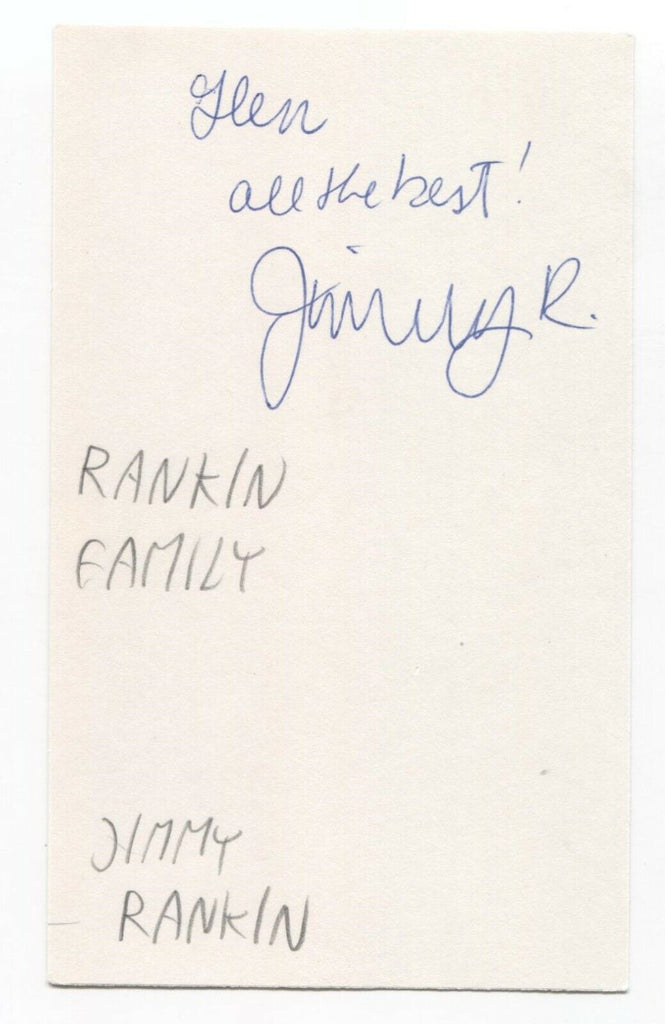 Glen
all the best!
Jimmy R.
RANKIN
FAMILY
JIMMY
RANKIN